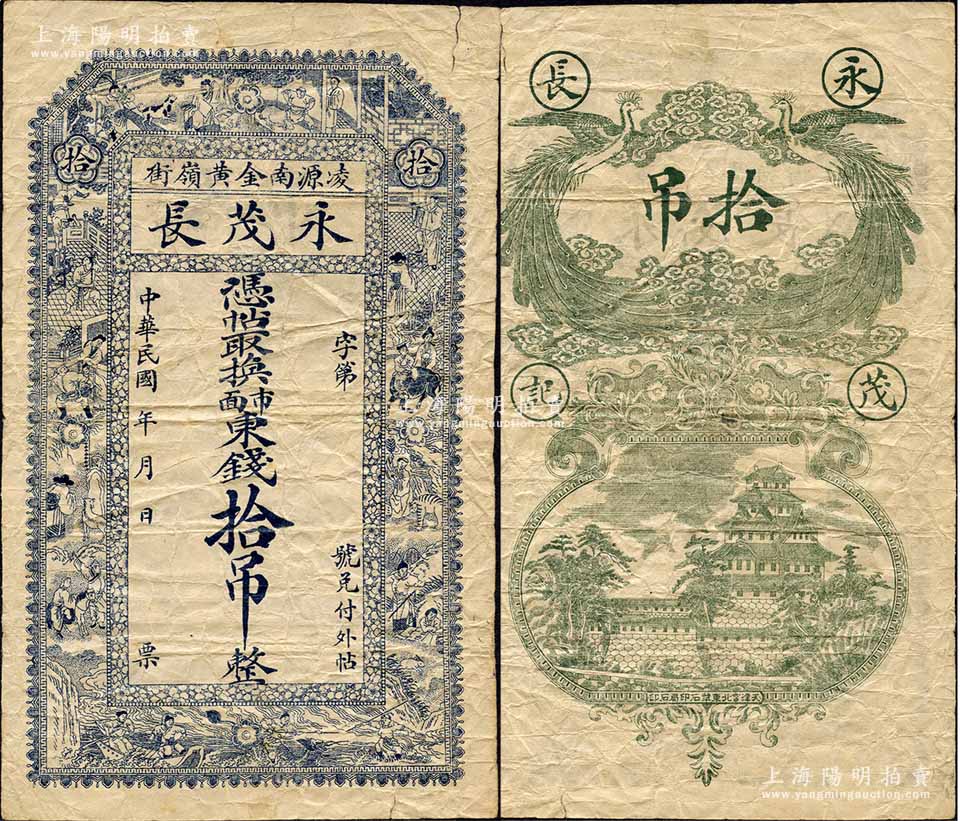 上海陽明拍賣
www.yangmingauction.com
拾
拾
凌源南金黃嶺街
永茂長
字第
號兑付外帖
憑帖取換市面東錢拾吊整
中華民國 年 月 日
票
永
長
拾吊
茂
記
上海陽明拍賣
www.yangmingauction.com
上海陽明拍賣
www.yangmingauction.com